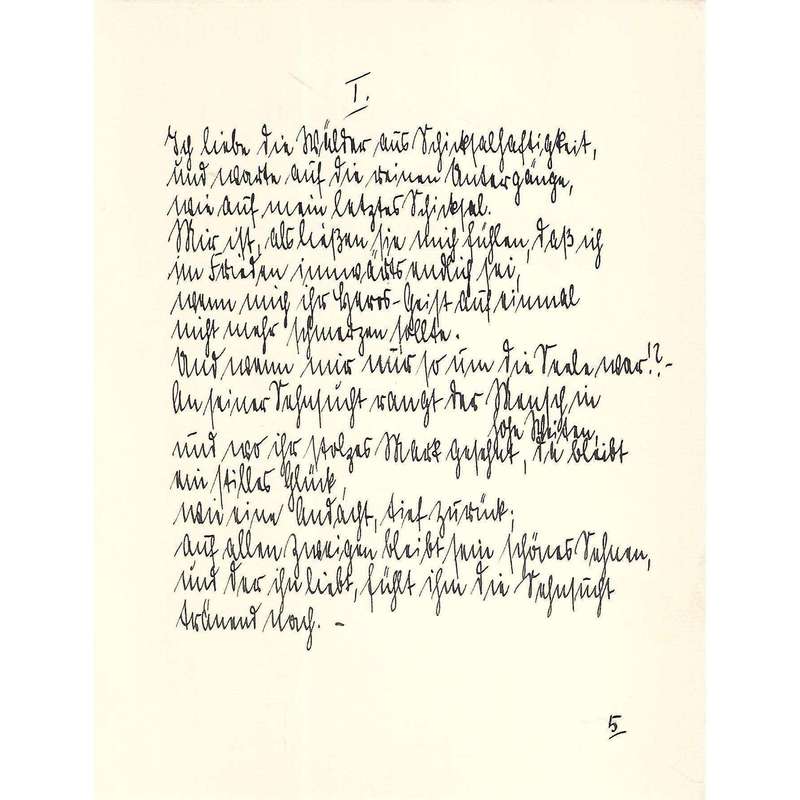 I.
Ich liebe die Wälder aus Schicksalhaftigkeit,
und warte auf die reinen Untergänge,
wie auf mein letztes Schicksal.
Mir ist, als ließen sie mich fühlen, daß ich
im Frieden innwärts endlich sei,
wenn mich ihr Geist auf einmal
nicht mehr schmerzen sollte.
Und wenn mir nur so um die Seele war!? -
An seiner Sehnsucht rangt der Mensch in
hohe Weiten,
und wo ihr stolzes Mark gesehnt, da bleibt
ein stilles Glück,
wie eine Andacht, tief zurück;
auf allen Zweigen bleibt sein schönes Sehnen,
und der ihn liebt, fühlt ihm die Sehnsucht
tränend nach. -
5